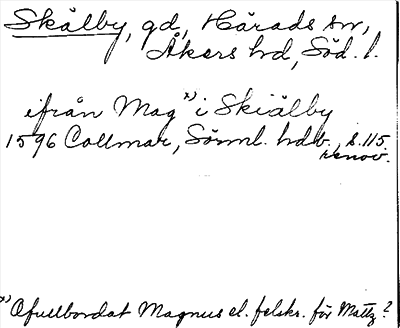 Skälby, gd, Härads sn,
Åkers hd, Söd. l.
ifrån Mag x) i Skiälby
1596 Collmar, Sörml. hdb., s. 115.
renov.
x) Ofullbordat Magnus el. felskr. för Mattz?